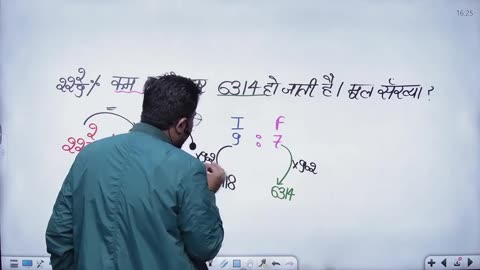 16:25
22 2/9 % कम 6314 हो जाती है / मूल संख्या ?
I F
22 2 =
9 : 7
×902 ×902
6314